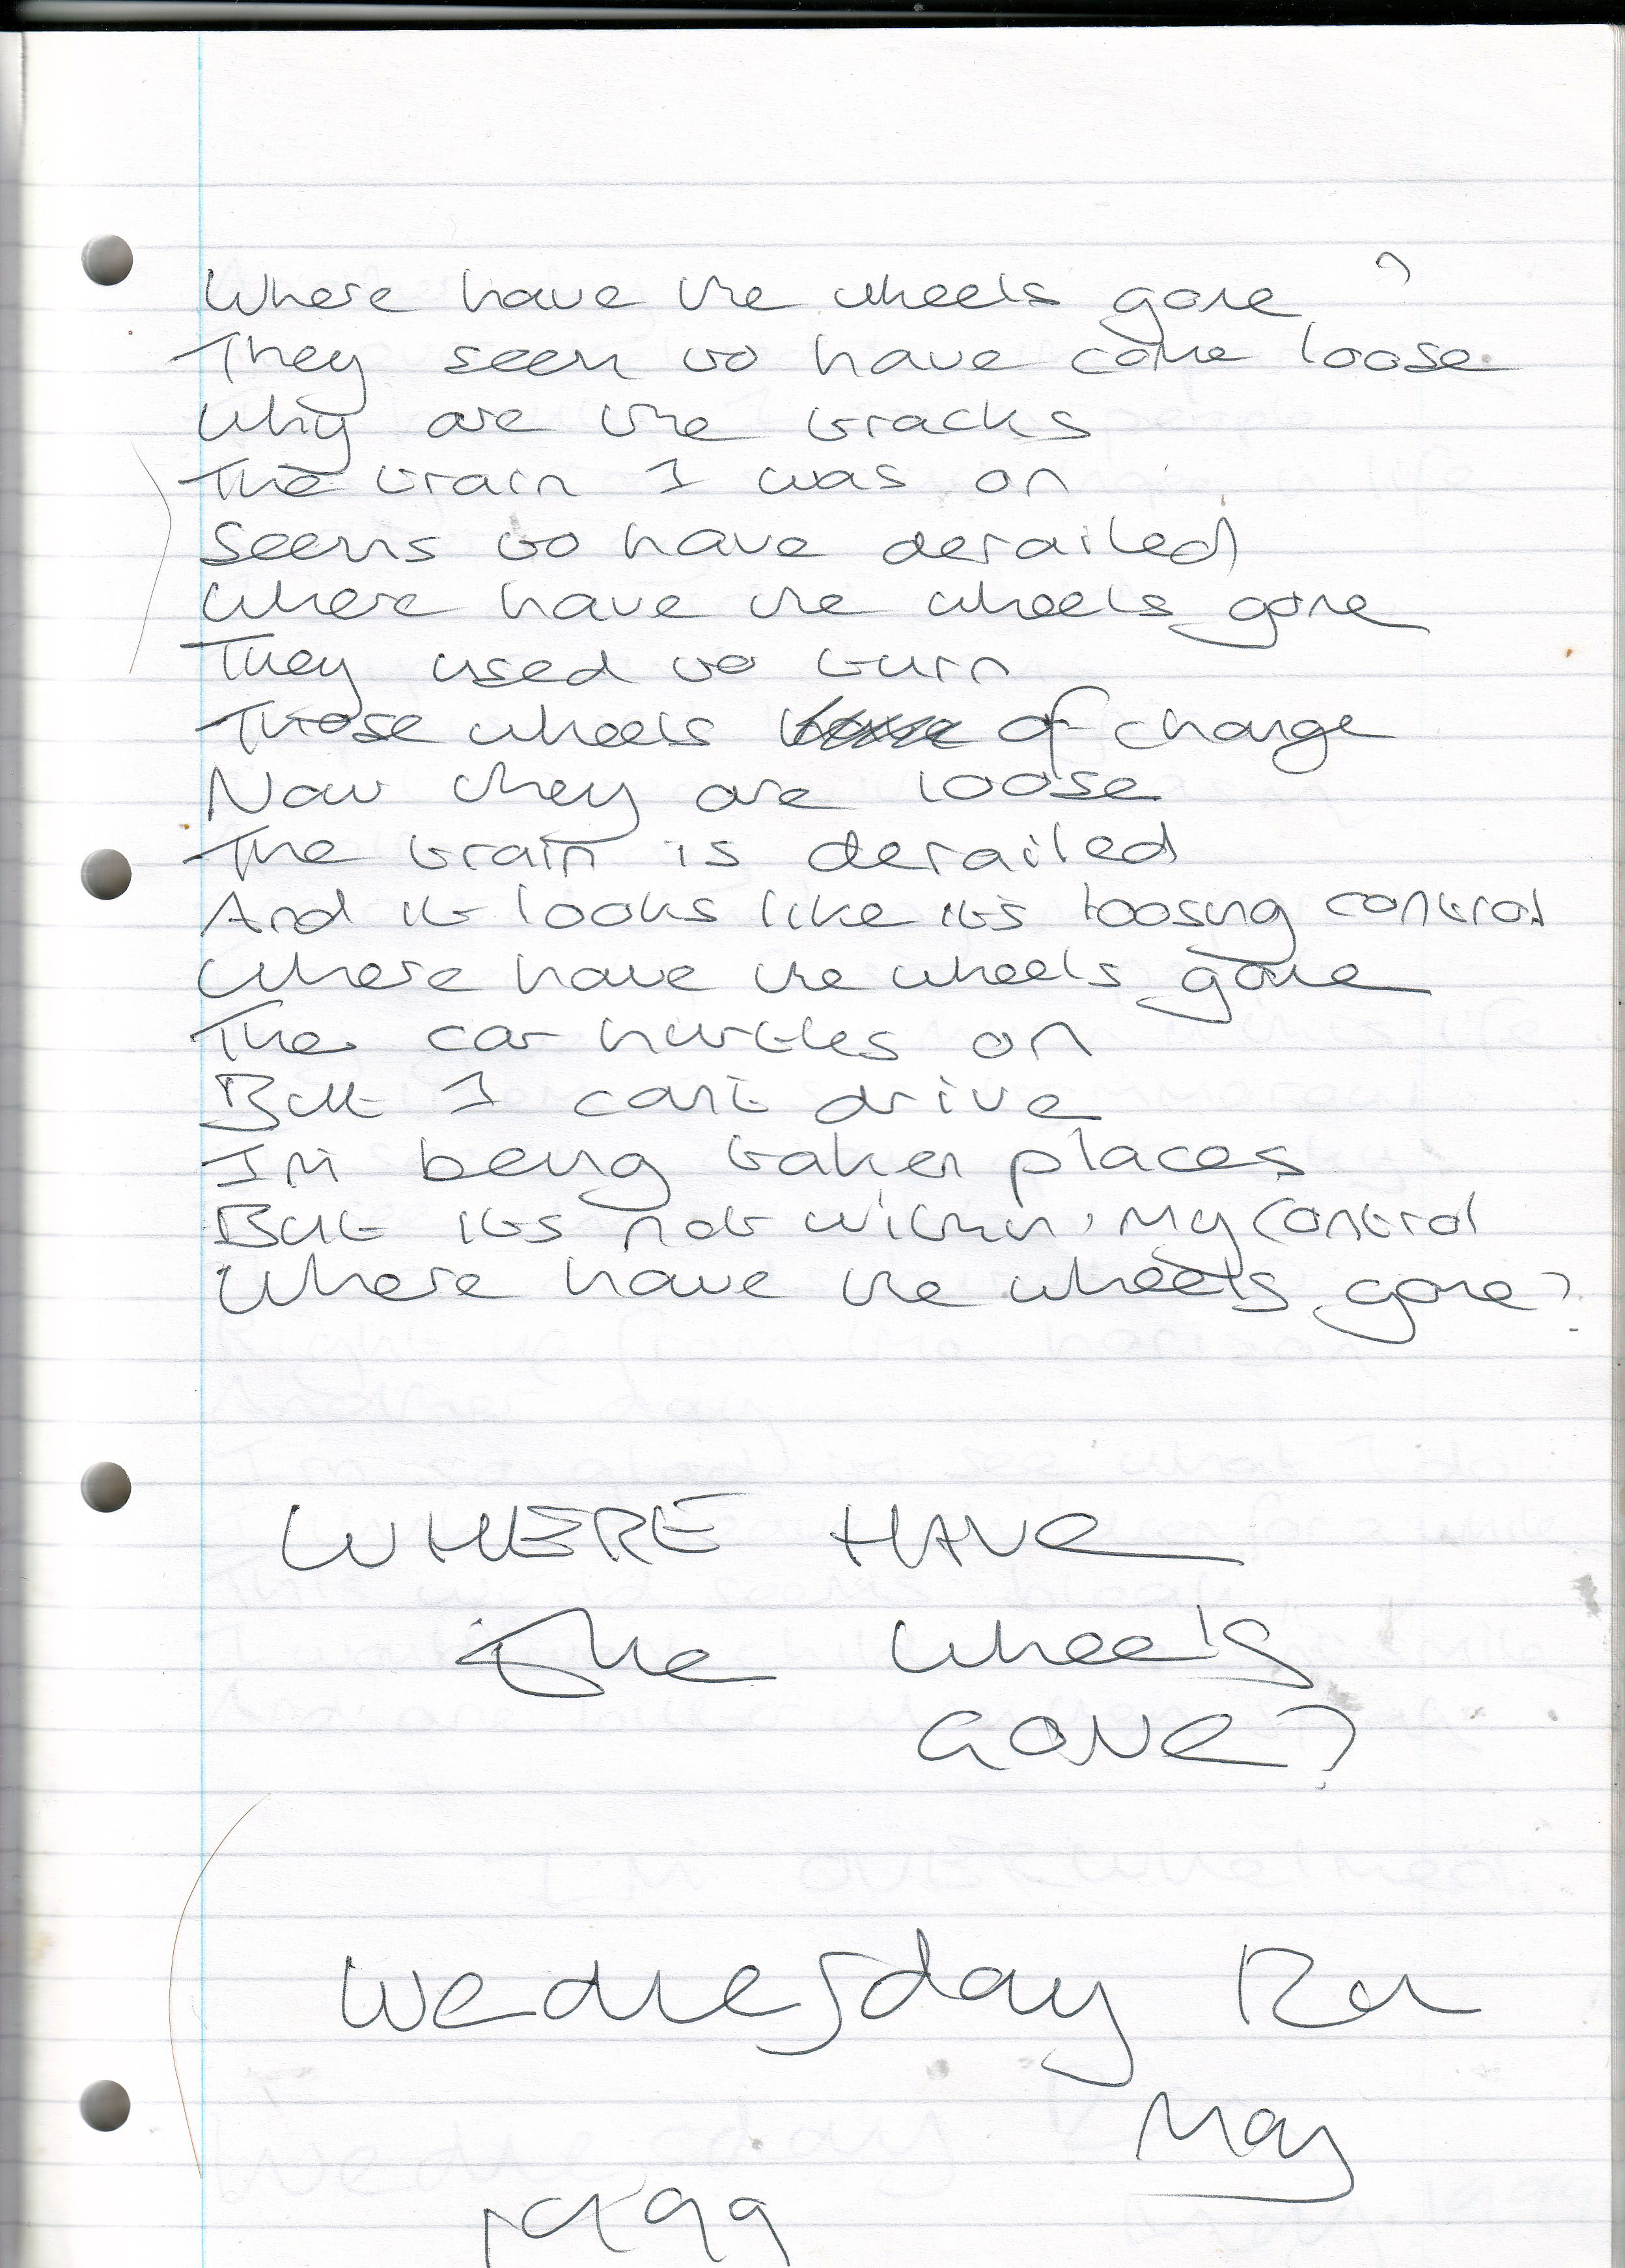 Where have the wheels gone?
They seem to have come loose
Why are the tracks
The train I was on
Seems to have derailed
Where have the wheels gone
They used to turn
Those wheels of change
Now they are loose
The train is derailed
And it looks like its loosing control
Where have the wheels gone
The car hurtles on
But I cant drive
Im being taken places
But its not within my control
Where have the wheels gone?
WHERE HAVE
The wheels
GONE?
Wednesday 12th
May
1999